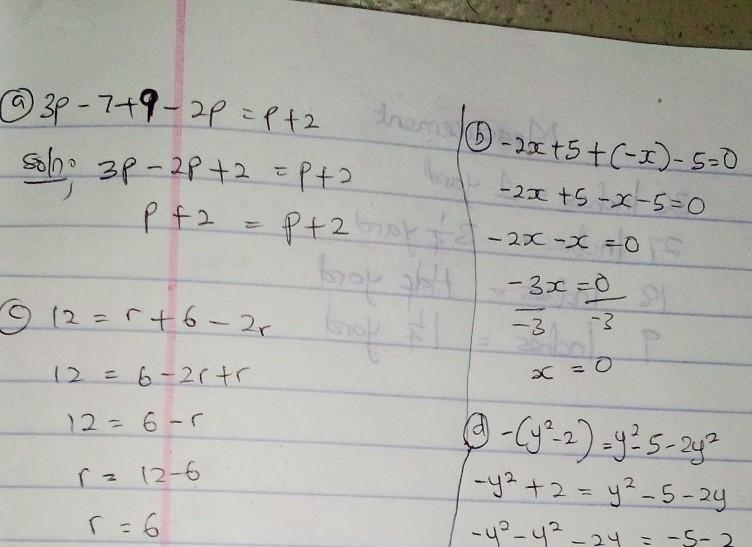 ⓐ 3p - 7 + 9 - 2p = p + 2
Soln: 3p - 2p + 2 = p + 2
p + 2 = p + 2
ⓒ 12 = r + 6 - 2r
12 = 6 - 2r + r
12 = 6 - r
r = 12 - 6
r = 6
ⓑ -2x + 5 + (-x) - 5 = 0
-2x + 5 - x - 5 = 0
-2x - x = 0
-3x = 0
-3 -3
x = 0
ⓓ -(y² - 2) = y² - 5 - 2y²
-y² + 2 = y² - 5 - 2y
-y² - y² - 2y = -5 - 2